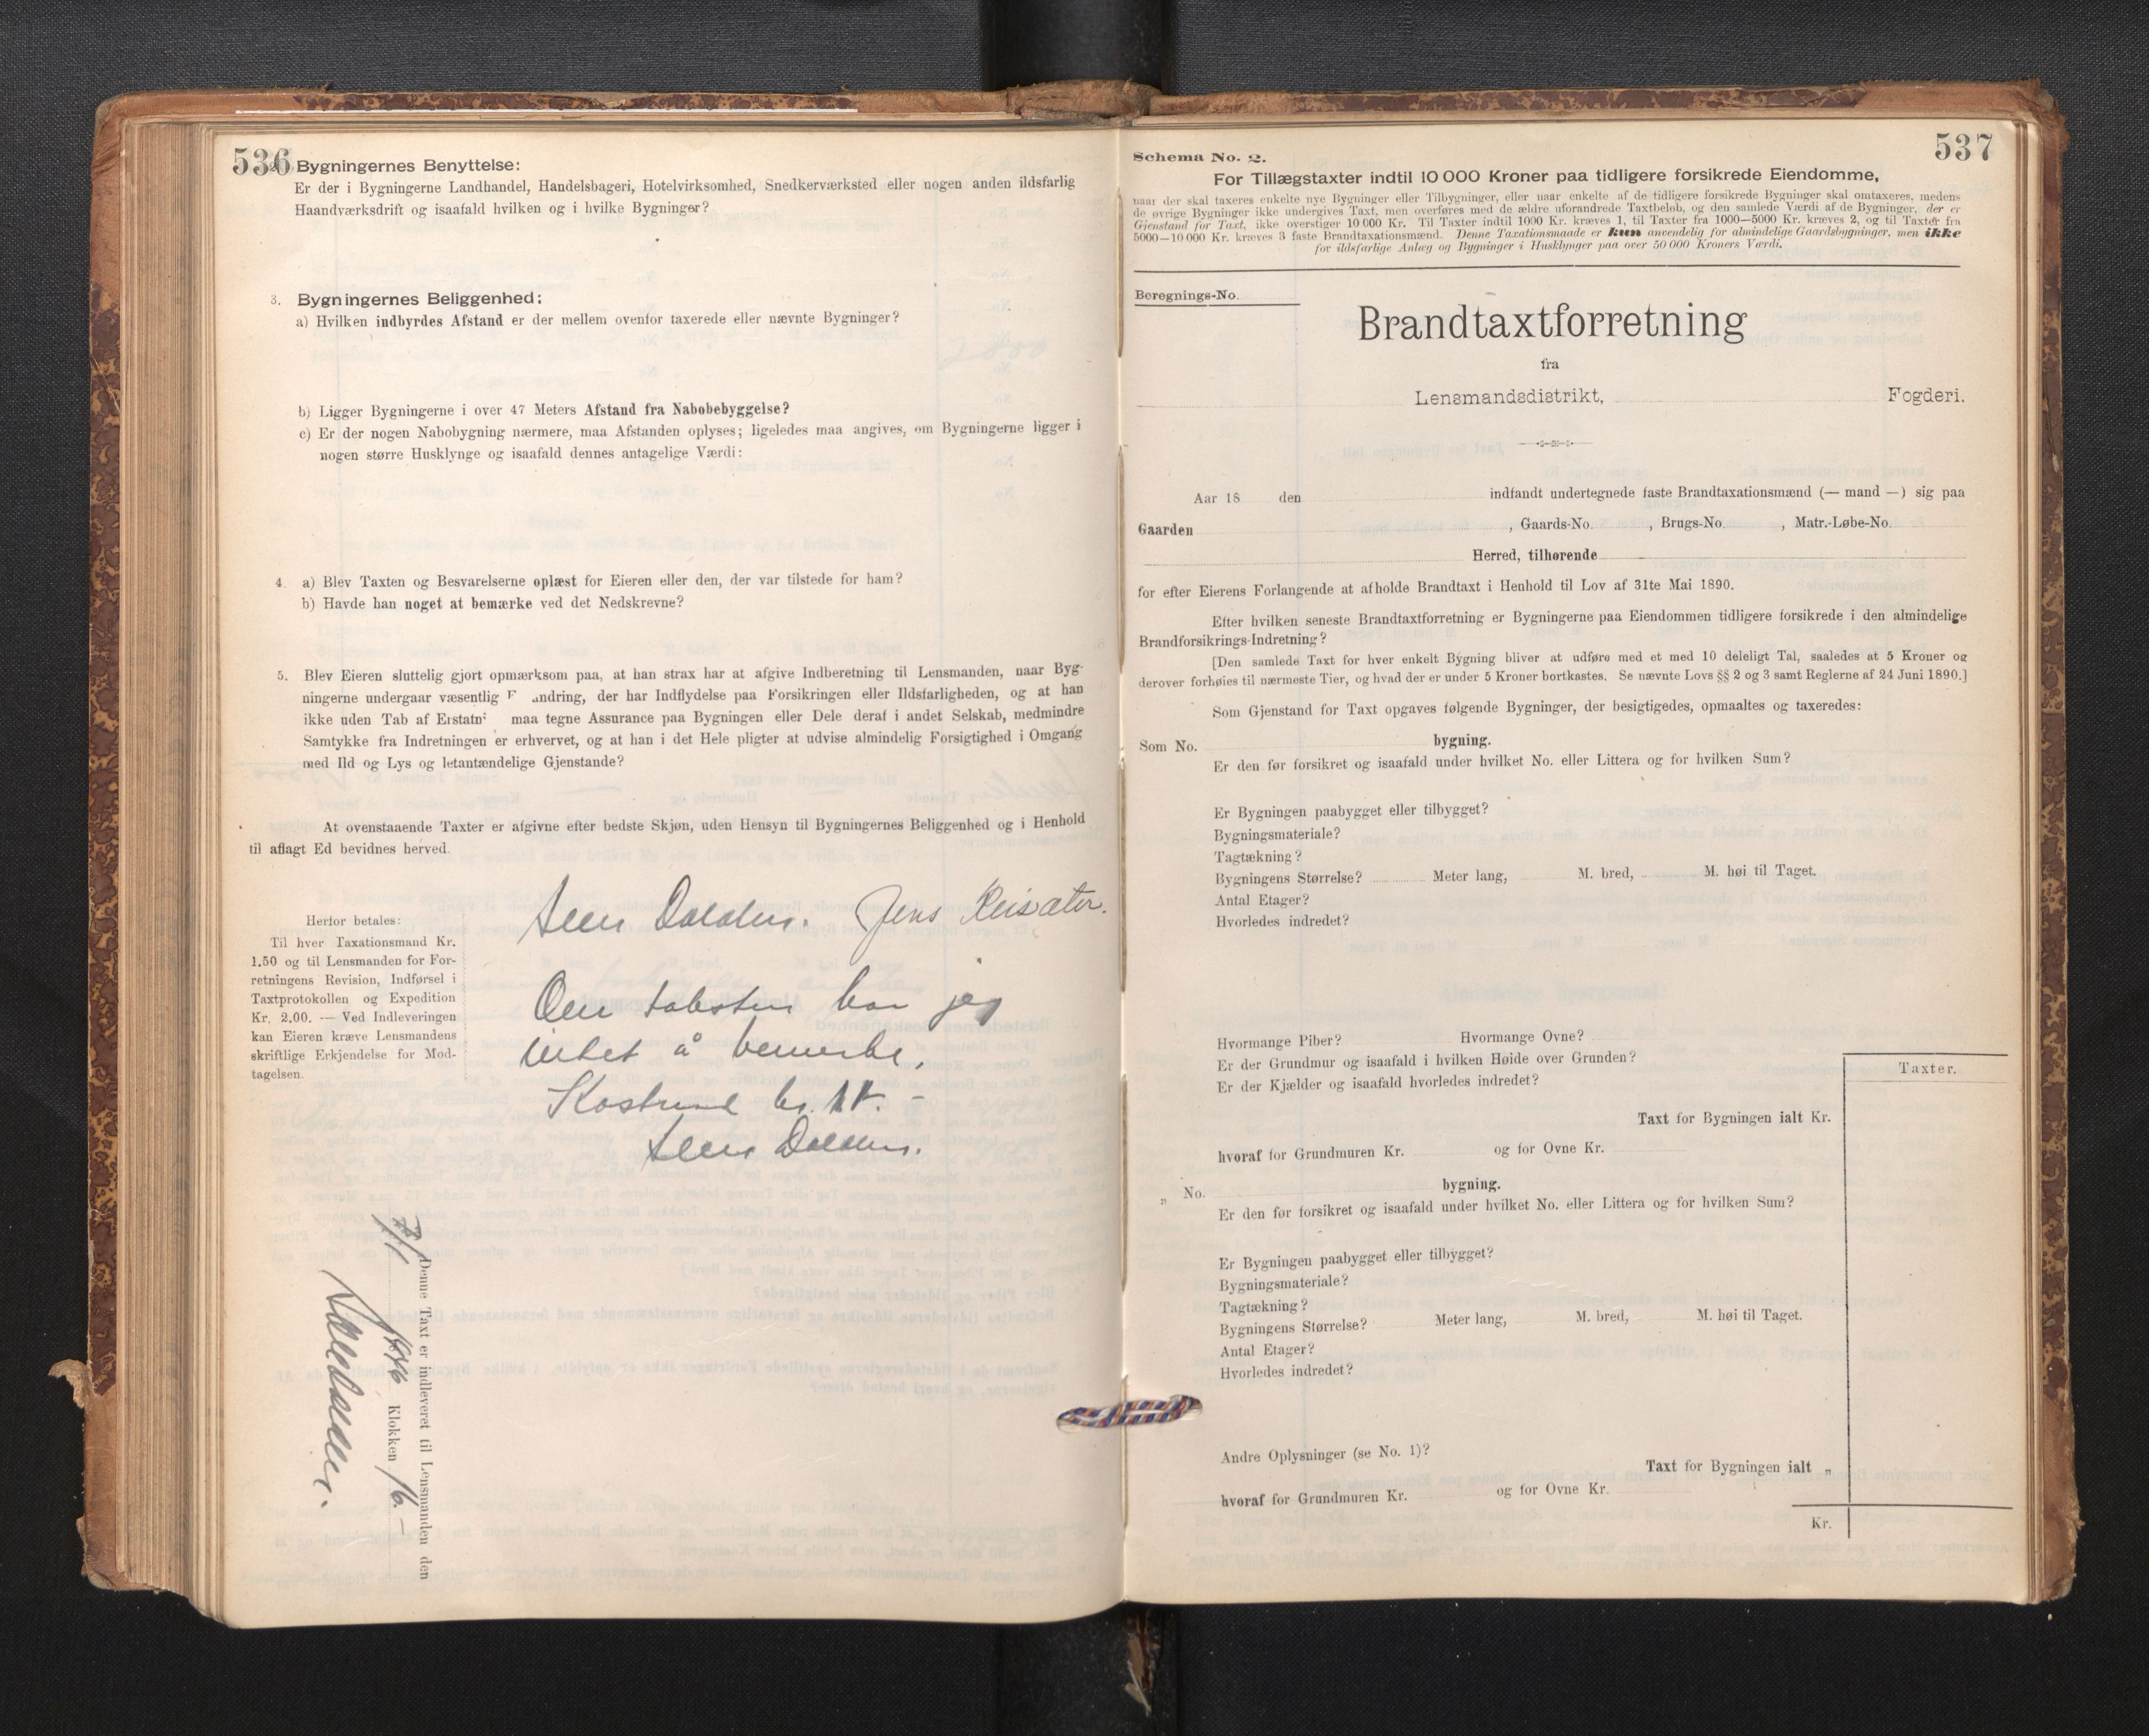 536
Bygningernes Benyttelse:
Er der i Bygningerne Landhandel, Handelsbageri, Hotelvirksomhed, Snedkerværksted eller nogen anden ildsfarlig
Haandværksdrift og isaafald hvilken og i hvilke Bygninger?
3. Bygningernes Beliggenhed:
a) Hvilken indbyrdes Afstand er der mellem ovenfor taxerede eller nævnte Bygninger?
b) Ligger Bygningerne i over 47 Meters Afstand fra Nabobebyggelse?
c) Er der nogen Nabobygning nærmere, maa Afstanden oplyses; ligeledes maa angives, om Bygningerne ligger i
nogen større Husklynge og isaafald dennes antagelige Værdi:
4. a) Blev Taxten og Besvarelserne oplæst for Eieren eller den, der var tilstede for ham?
b) Havde han noget at bemærke ved det Nedskrevne?
5. Blev Eieren sluttelig gjort opmærksom paa, at han strax har at afgive Indberetning til Lensmanden, naar Byg-
ningerne undergaar væsentlig F andring, der har Indflydelse paa Forsikringen eller Ildsfarligheden, og at han
ikke uden Tab af Erstatn maa tegne Assurance paa Bygningen eller Dele deraf i andet Selskab, medmindre
Samtykke fra Indretningen er erhvervet, og at han i det Hele pligter at udvise almindelig Forsigtighed i Omgang
med Ild og Lys og letantændelige Gjenstande?
At ovenstaaende Taxter er afgivne efter bedste Skjøn, uden Hensyn til Bygningernes Beliggenhed og i Henhold
til aflagt Ed bevidnes herved.
Jens
Herfor betales:
Til hver Taxationsmand Kr.
1.50 og til Lensmanden for For-
retningens Revision, Indførsel i
Taxtprotokollen og Expedition
Kr. 2.00. — Ved Indleveringen
kan Eieren kræve Lensmandens
skriftlige Erkjendelse for Mod-
tagelsen.
Om taksten har jeg
intet å bemerke.
kr.
Denne Taxt er indleveret til Lensmanden den
Klokken 16.–
537
Schema No. 2.
For Tillægstaxter indtil 10 000 Kroner paa tidligere forsikrede Eiendomme,
naar der skal taxeres enkelte nye Bygninger eller Tilbygninger, eller naar enkelte af de tidligere forsikrede Bygninger skal omtaxeres, medens
de øvrige Bygninger ikke undergives Taxt, men overføres med de ældre uforandrede Taxtbeløb, og den samlede Værdi af de Bygninger, der er
Gjenstand for Taxt, ikke overstiger 10 000 Kr. Til Taxter indtil 1000 Kr. kræves 1, til Taxter fra 1000—5000 Kr. kræves 2, og til Taxter fra
5000—10 000 Kr. kræves 3 faste Brandtaxationsmænd. Denne Taxationsmaade er kun anvendelig for almindelige Gaardsbygninger, men ikke
for ildsfarlige Anlæg og Bygninger i Husklynger paa over 50 000 Kroners Værdi.
Beregnings-No.
Brandtaxtforretning
fra
Lensmandsdistrikt, Fogderi.
Aar 18 den indfandt undertegnede faste Brandtaxationsmænd (— mand —) sig paa
Gaarden , Gaards-No. , Brugs-No. , Matr.-Løbe-No.
Herred, tilhørende
for efter Eierens Forlangende at afholde Brandtaxt i Henhold til Lov af 31te Mai 1890.
Efter hvilken seneste Brandtaxtforretning er Bygningerne paa Eiendommen tidligere forsikrede i den almindelige
Brandforsikrings-Indretning?
[Den samlede Taxt for hver enkelt Bygning bliver at udføre med et med 10 deleligt Tal, saaledes at 5 Kroner og
derover forhøies til nærmeste Tier, og hvad der er under 5 Kroner bortkastes. Se nævnte Lovs §§ 2 og 3 samt Reglerne af 24 Juni 1890.]
Som Gjenstand for Taxt opgaves følgende Bygninger, der besigtigedes, opmaaltes og taxeredes:
Som No. bygning.
Er den før forsikret og isaafald under hvilket No. eller Littera og for hvilken Sum?
Er Bygningen paabygget eller tilbygget?
Bygningsmateriale?
Tagtækning?
Bygningens Størrelse? Meter lang, M. bred, M. høi til Taget.
Antal Etager?
Hvorledes indredet?
Hvormange Piber? Hvormange Ovne?
Er der Grundmur og isaafald i hvilken Høide over Grunden?
Er der Kjælder og isaafald hvorledes indredet?
Taxter.
Taxt for Bygningen ialt Kr.
hvoraf for Grundmuren Kr. og for Ovne Kr.
„ No. bygning.
Er den før forsikret og isaafald under hvilket No. eller Littera og for hvilken Sum?
Er Bygningen paabygget eller tilbygget?
Bygningsmateriale?
Tagtækning?
Bygningens Størrelse? Meter lang, M. bred, M. høi til Taget.
Antal Etager?
Hvorledes indredet?
Andre Oplysninger (se No. 1)?
Taxt for Bygningen ialt „
hvoraf for Grundmuren Kr. og for Ovne Kr.
Kr.